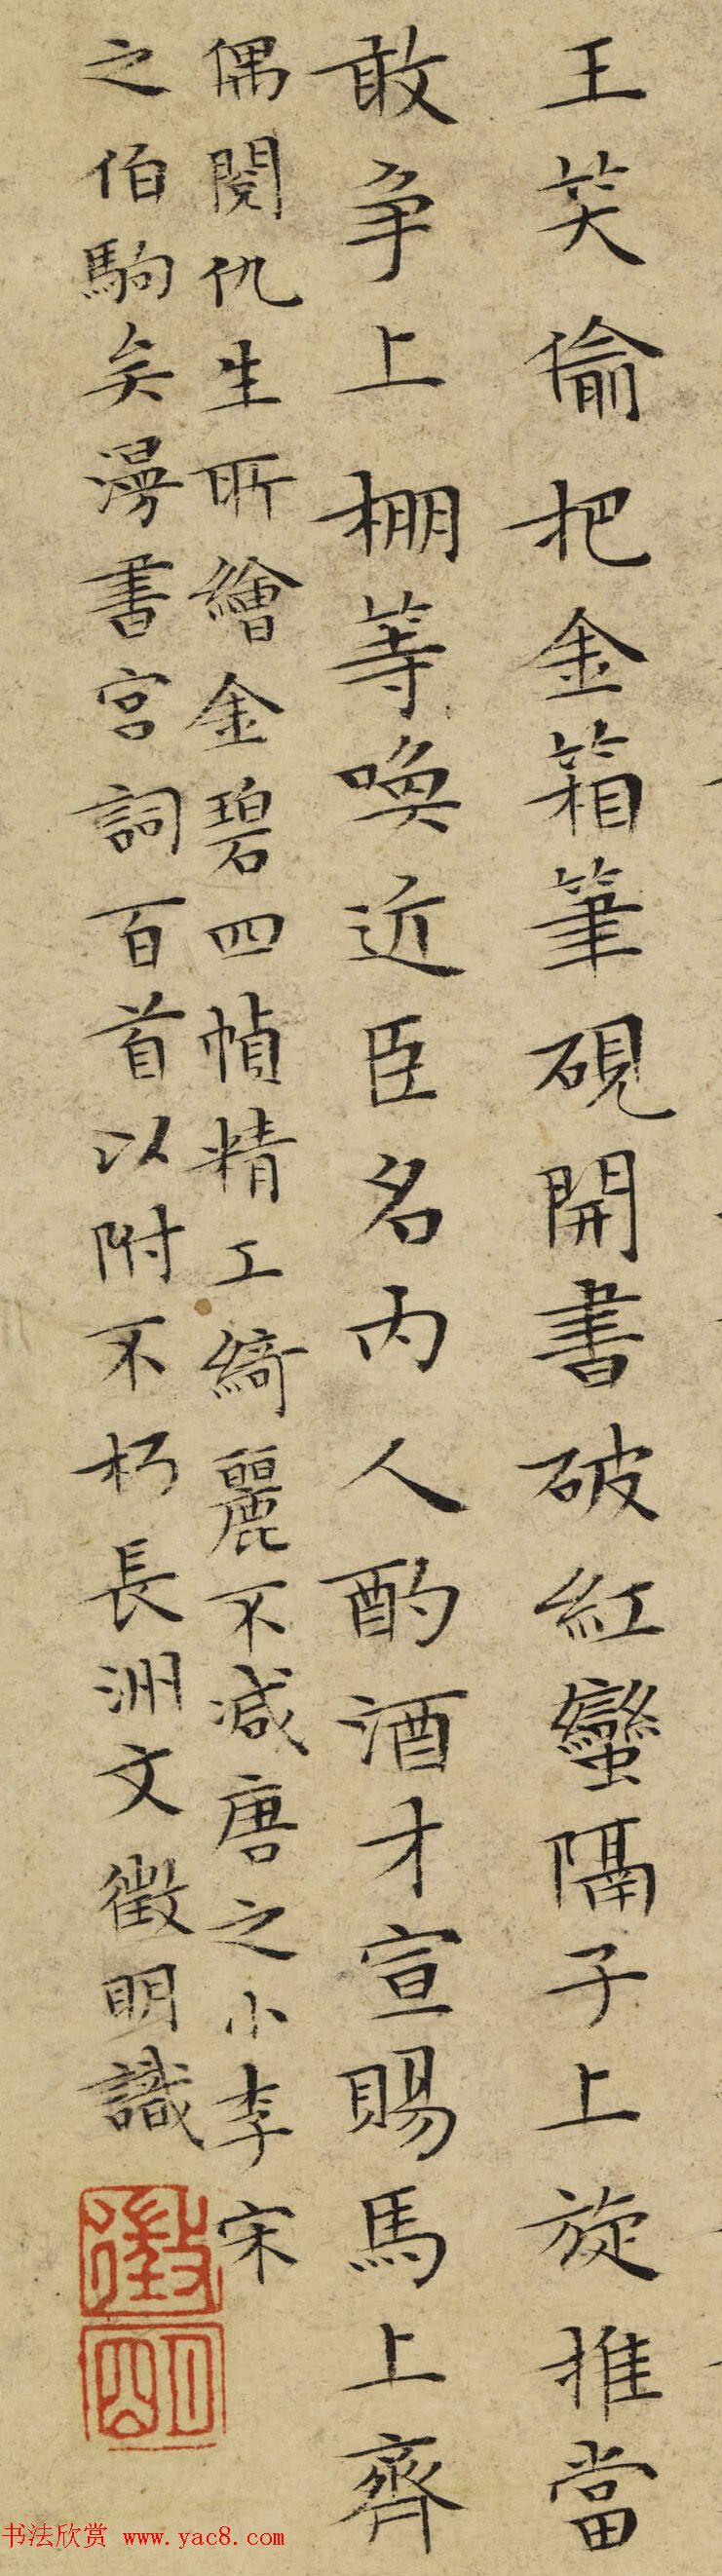 王笑偷把金箱筆硯開書破紅蠻隔子上旋推當
敢爭上棚等喚近臣名内人酌酒才宣賜馬上齊
偶閱仇生所繪金碧四幀精工綺麗不减唐之小李宋
之伯駒矣漫書宮詞百首以附不朽長洲文徵明識
徵明
书法欣赏 www.yac8.com